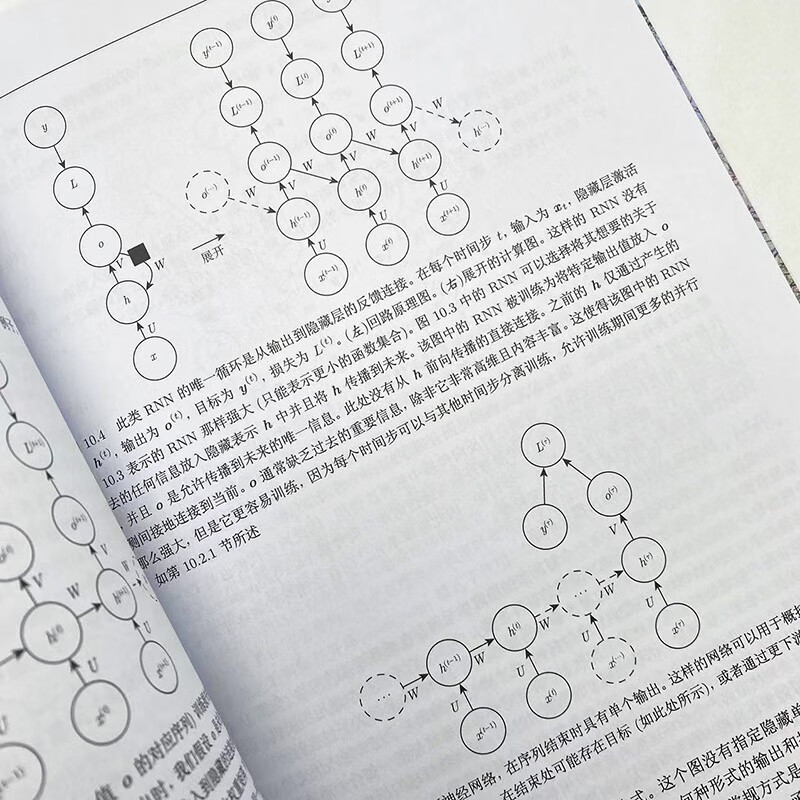 y
L
o
h
x
U
V
W
展开
y⁽ᵗ⁻¹⁾
y⁽ᵗ⁾
L⁽ᵗ⁻¹⁾
L⁽ᵗ⁾
L⁽ᵗ⁺¹⁾
o⁽···⁾
o⁽ᵗ⁻¹⁾
o⁽ᵗ⁾
o⁽ᵗ⁺¹⁾
W
W
W
W
h⁽···⁾
V
V
V
h⁽ᵗ⁻¹⁾
h⁽ᵗ⁾
h⁽ᵗ⁺¹⁾
U
U
U
x⁽ᵗ⁻¹⁾
x⁽ᵗ⁾
x⁽ᵗ⁺¹⁾
10.4 此类 RNN 的唯一循环是从输出到隐藏层的反馈连接。在每个时间步 t，输入为 xₜ，隐藏层激活
h⁽ᵗ⁾，输出为 o⁽ᵗ⁾，目标为 y⁽ᵗ⁾，损失为 L⁽ᵗ⁾。(左)回路原理图。(右)展开的计算图。这样的 RNN 没有
10.3 表示的 RNN 那样强大 (只能表示更小的函数集合)。图 10.3 中的 RNN 可以选择将其想要的关于
去的任何信息放入隐藏表示 h 中并且将 h 传播到未来。该图中的 RNN 被训练为将特定输出值放入 o
，并且 o 是允许传播到未来的唯一信息。此处没有从 h 前向传播的直接连接。之前的 h 仅通过产生的
测间接地连接到当前。o 通常缺乏过去的重要信息，除非它非常高维且内容丰富。这使得该图中的 RNN
那么强大，但是它更容易训练，因为每个时间步可以与其他时间步分离训练，允许训练期间更多的并行
如第 10.2.1 节所述
L⁽τ⁾
y⁽τ⁾
o⁽τ⁾
V
···
W
h⁽ᵗ⁻¹⁾
W
h⁽ᵗ⁾
W
···
W
h⁽τ⁾
U
U
U
U
x⁽ᵗ⁻¹⁾
x⁽ᵗ⁾
x⁽···⁾
x⁽τ⁾
神经网络，在序列结束时具有单个输出。这样的网络可以用于概括
在结束处可能存在目标 (如此处所示)，或者通过更下游
式。这个图没有指定隐藏单
何种形式的输出和
L⁽ᵗ⁺¹⁾
o⁽ᵗ⁾
o⁽ᵗ⁺¹⁾
V
V
h⁽ᵗ⁾
W
h⁽ᵗ⁺¹⁾
U
U
x⁽ᵗ⁾
x⁽ᵗ⁺¹⁾
值 o 的对应序列)